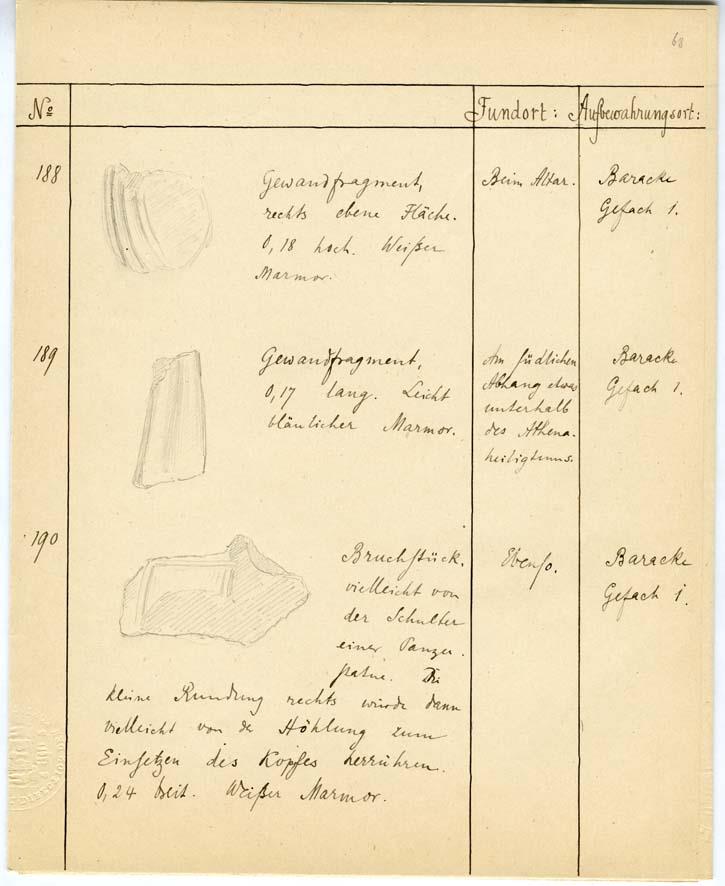 68
No Fundort: Aufbewahrungsort:
188
Gewandfragment,
rechts ebene Fläche.
0,18 hoch. Weißer
Marmor.
Beim Altar.
Baracke
Gefach 1.
189
Gewandfragment,
0,17 lang. Leicht
bläulicher Marmor.
Am südlichen
Abhang etwas
unterhalb
des Athena-
heiligtums.
Baracke
Gefach 1.
190
Bruchstück.
vielleicht von
der Schulter
einer Panzer-
statue. Die
kleine Rundung rechts würde dann
vielleicht von der Höhlung zum
Einsetzen des Kopfes herrühren.
0,24 breit. Weißer Marmor.
Ebenso.
Baracke
Gefach 1.